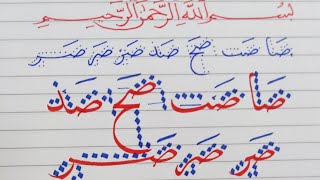 بسم الله الرحمن الرحيم
ضا ضت ضح ضد ضر ضر
ضا ضت ضح ضد
ضر ضر